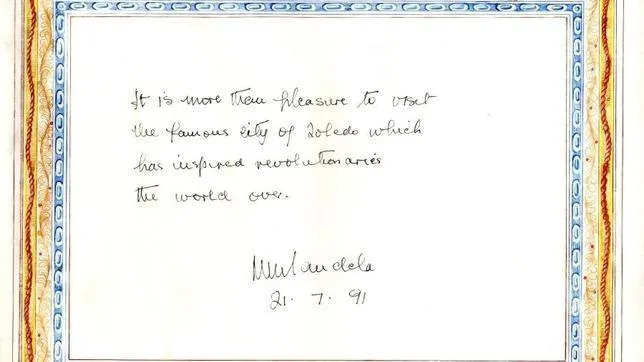 It is more than pleasure to visit
the famous city of Toledo which
has inspired revolutionaries
the world over.
NMandela
21. 7. 91